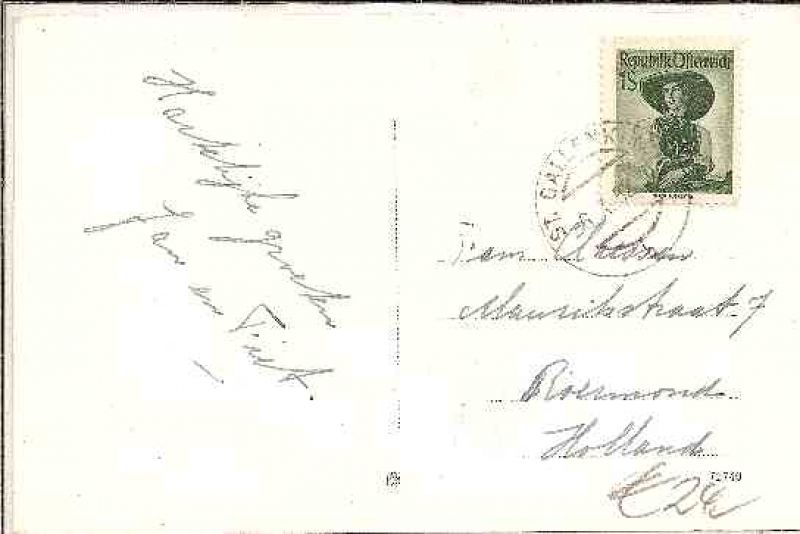 Hartelijke groeten
Jan en Tiet.
Republik Österreich
1S
ST. GALLENK
Fam
Mauritsstraat 7
Roermond
Holland
72749